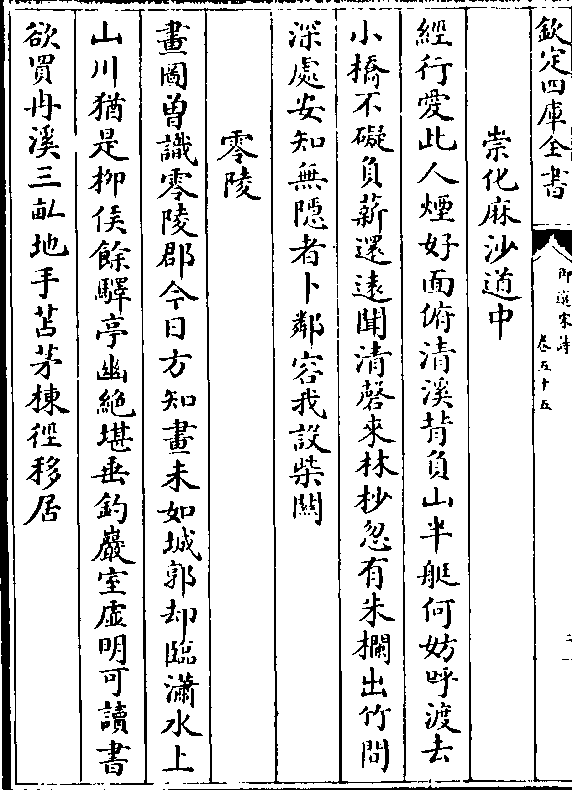 欽定四庫全書
御選宋詩
卷五十五
崇化麻沙道中
經行愛此人煙好面俯清溪背負山半艇何妨呼渡去
小橋不礙負薪還遠聞清磬來林杪忽有朱欄出竹間
深處安知無隱者卜鄰容我設柴關
零陵
畫圖曾識零陵郡今日方知畫未如城郭却臨瀟水上
山川猶是柳侯餘驛亭幽絶堪垂釣巖室虛明可讀書
欲買冉溪三畝地手苫茅棟徑移居